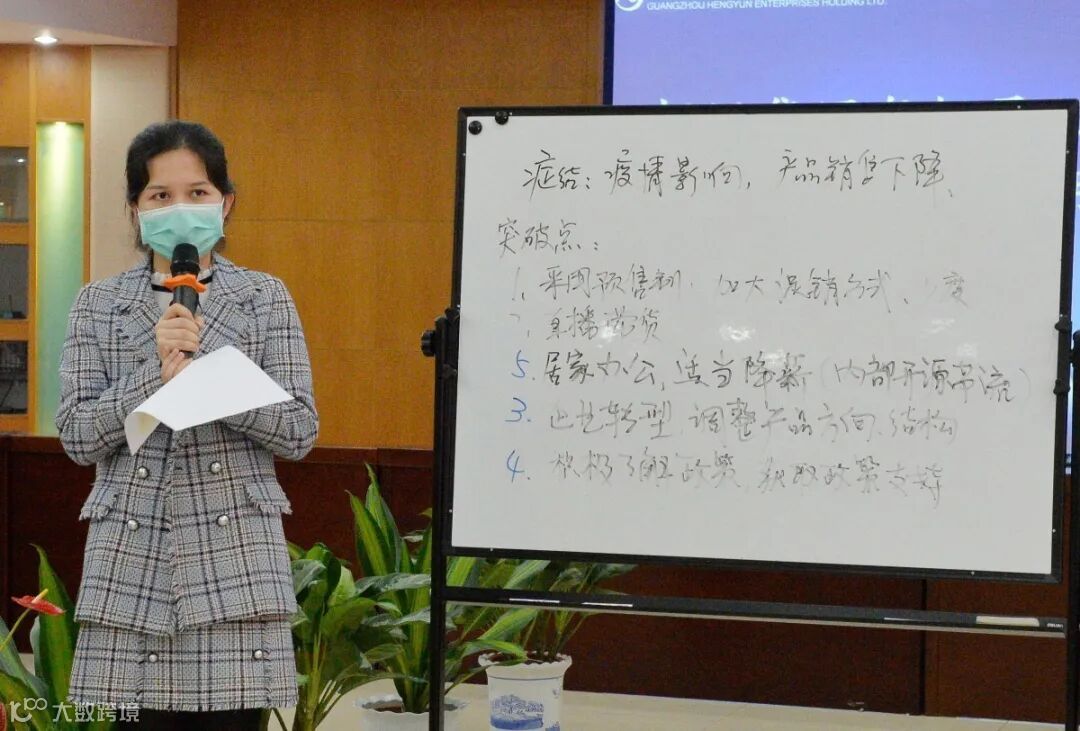 GUANGZHOU HENGYUN ENTERPRISES HOLDING LTD.
症结：疫情影响，产品销售下降、
突破点：
1、采用预售制、加大混销方式、度
直播带货
5.居家办公，适当降薪（内部开源节流）
3.转型，调整产品方向、结构
4.积极了解政策，获取政策支持
大数跨境